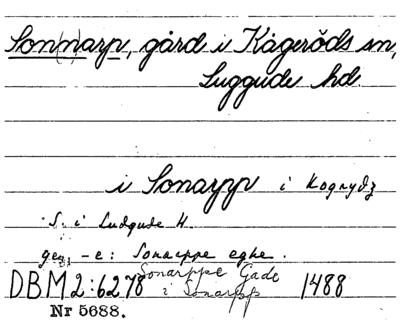 Son(n)arp, gård i Kågeröds sn,
Luggude hd.
i Sonarpp i Kognydz
S. i Ludgude H.
geg -e: Sonarppe eghe.
Sonarppe Gade
DBM 2:6278 i Sonarpp 1488
Nr 5688.